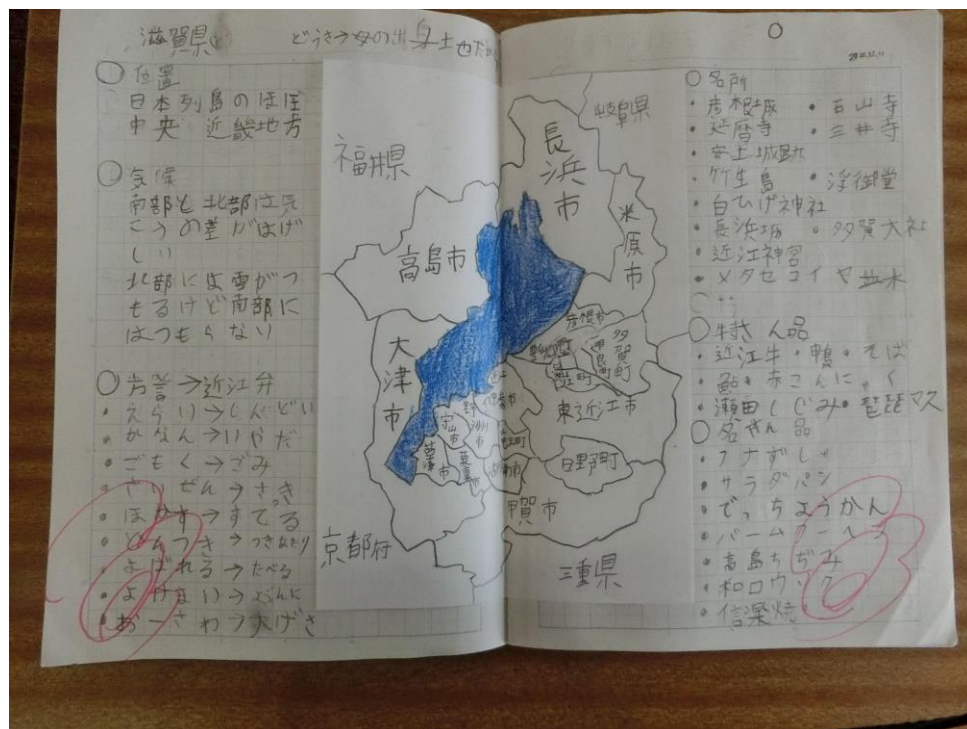 滋賀県
どうき→母の出身土也だから
○位置
日本列島のほぼ
中央 近畿地方
○気候
南部と北部は気
こうの差がはげ
しい
北部には雪がつ
もるけど南部に
はつもらない
○方言→近江弁
・えらい→しんどい
・かなん→いやだ
・ごもく→ごみ
・さいぜん→さっき
・ほかす→すてる
・どんつき→つきあたり
・よばれる→たべる
・おーさわ→大げさ
福井県
岐阜県
長浜市
米原市
高島市
大津市
彦根市
多賀町
甲良町
東近江市
日野町
守山市
草津市
甲賀市
京都府
三重県
○名所
・彦根城 ・石山寺
・延暦寺 ・三井寺
・安土城跡
・竹生島 ・浮御堂
・白ひげ神社
・長浜城 ・多賀大社
・近江神宮
・メタセコイヤ並木
○特さん品
・近江牛・鴨・そば
・鮎・赤こんにゃく
・瀬田しじみ・琵琶マス
○名さん品
・フナずし
・サラダパン
・でっちようかん
・バームクーヘン
・高島ちぢみ
・和ロウソク
・信楽焼